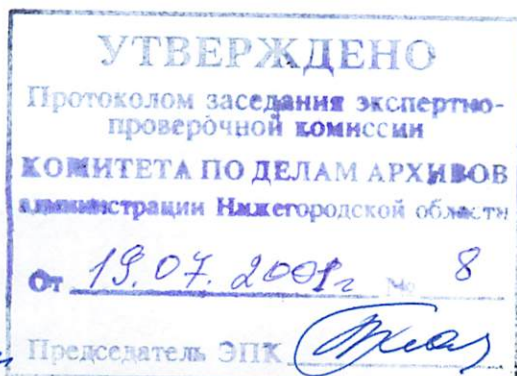 УТВЕРЖДЕНО
Протоколом заседания экспертно-
проверочной комиссии
КОМИТЕТА ПО ДЕЛАМ АРХИВОВ
администрации Нижегородской области
От 19.07.2001г № 8
Председатель ЭПК